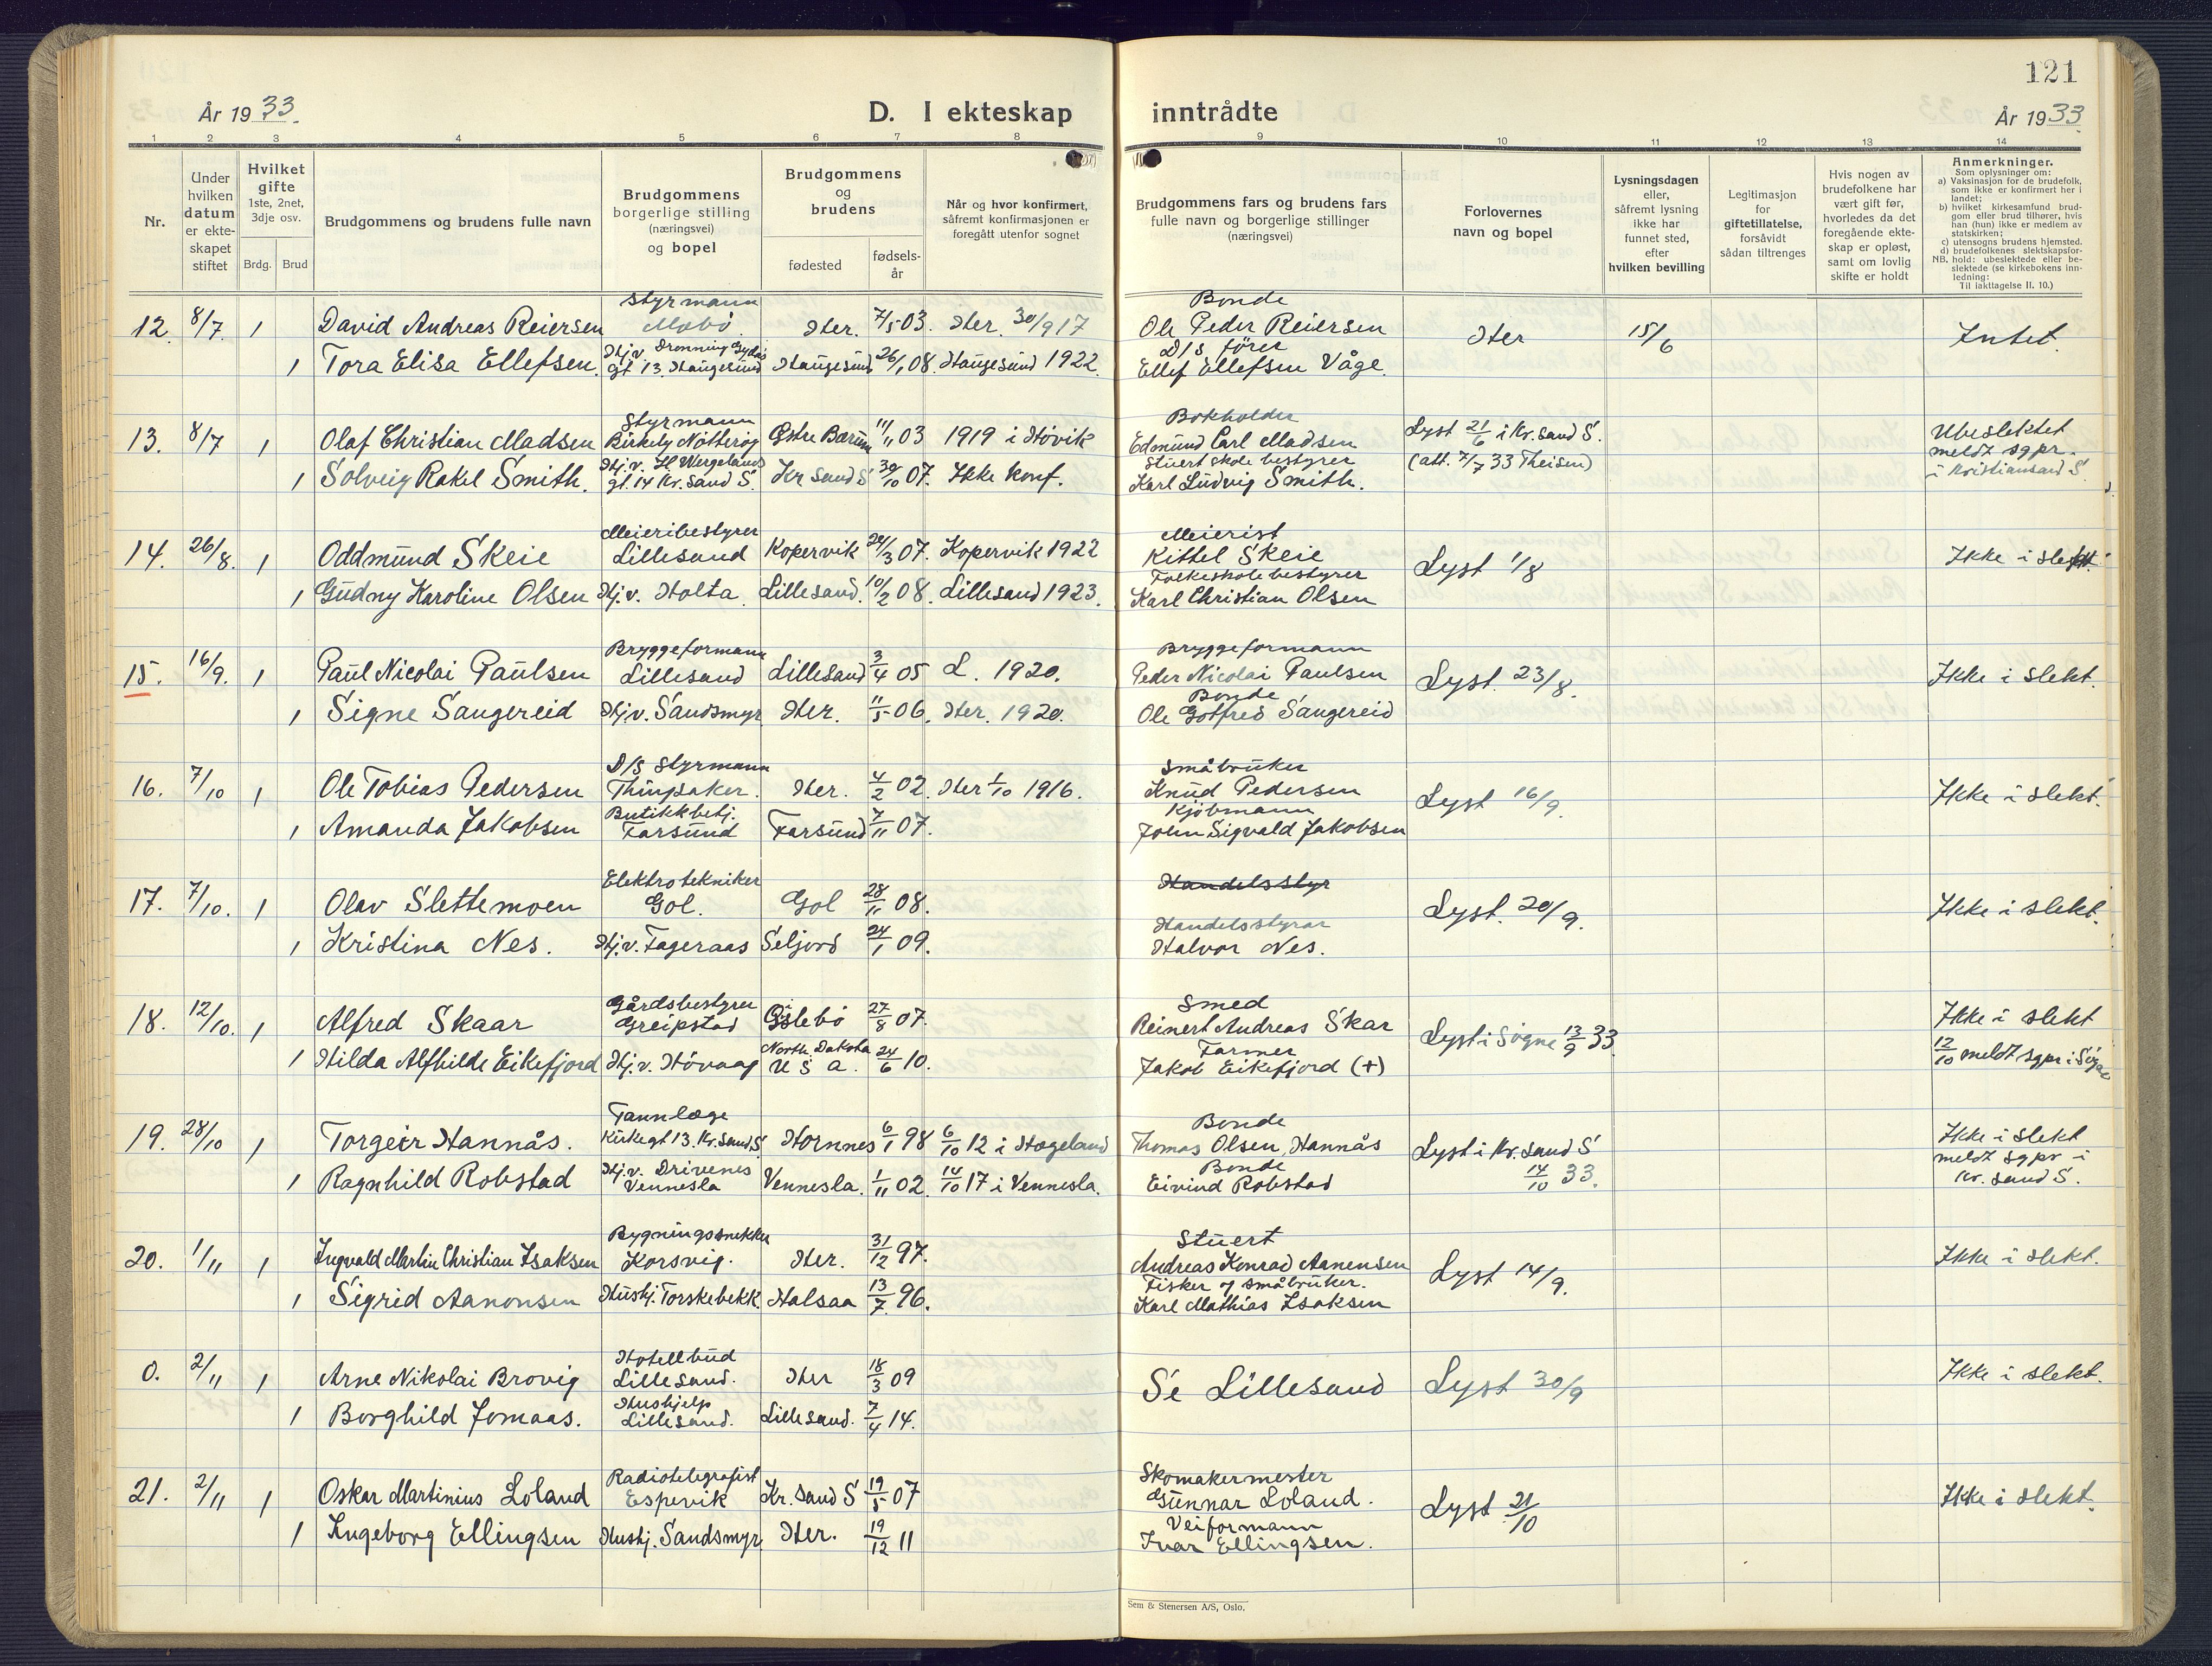 121
År 1933.
D. I ekteskap inntrådte
År 1933.
1 2 3 4 5 6 7 8 9 10 11 12 13 14
Nr.
Under hvilken datum er ekteskapet stiftet
Hvilket gifte 1ste, 2net, 3dje osv.
Brdg. Brud
Brudgommens og brudens fulle navn
Brudgommens borgerlige stilling (næringsvei) og bopel
Brudgommens og brudens
fødested
fødselsår
Når og hvor konfirmert, såfremt konfirmasjonen er foregått utenfor sognet
Brudgommens fars og brudens fars fulle navn og borgerlige stillinger (næringsvei)
Forlovernes navn og bopel
Lysningsdagen eller, såfremt lysning ikke har funnet sted, efter hvilken bevilling
Legitimasjon for giftetillatelse, forsåvidt sådan tiltrenges
Hvis nogen av brudefolkene har vært gift før, hvorledes da det foregående ekteskap er opløst, samt om lovlig skifte er holdt
Anmerkninger.
Som oplysninger om:
a) Vaksinasjon for de brudefolk, som ikke er konfirmert her i landet;
b) hvilket kirkesamfund brudgom eller brud tilhører, hvis han (hun) ikke er medlem av statskirken;
c) utensogns brudens hjemsted.
d) brudefolkenes slektskapsforhold: ubeslektede eller beslektede (se kirkebokens innledning:
NB.
Til iakttagelse II. 10.)
Styrmann Bonde
12. 8/7 1 David Andreas Reiersen Mæbø. Her. 7/5 03. Her. 30/9 17 Ole Peder Reiersen Her 15/6 Intet.
Hj.v. Dronning Gydas D/S fører
1 Tora Elisa Ellefsen. gt 13. Haugesund Haugesund 26/1 08. Haugesund 1922. Ellef Ellefsen Våge.
Styrmann Bokholder
13. 8/7 1 Olaf Christian Madsen Birkely Nøtterøy Østre Bærum 11/11 03 1919 i Høvik Edmund Carl Madsen Lyst 21/6 i Kr.sand S. Ubeslektet
Hj.v. H Wergelands Stuertskolebestyrer (att. 7/7 33 Theisen) meldt sgpr.
1 Solveig Rakel Smith. gt. 14 Kr. sand S. Kr sand S 30/10 07. Ikke konf. Karl Ludvig Smith. i Kristiansand S.
Meieribestyrer Meierist
14. 26/8. 1 Oddmund Skeie Lillesand Kopervik 24/3 07. Kopervik 1922 Kittel Skeie Lyst 1/8 Ikke i slekt.
Folkeskolebestyrer
1 Gudny Karoline Olsen Hj.v. Holta. Lillesand. 10/2 08. Lillesand 1923. Karl Christian Olsen
Bryggeformann Bryggeformann
15. 16/9. 1 Paul Nicolai Paulsen Lillesand Lillesand 3/4 05 L. 1920. Peder Nicolai Paulsen Lyst. 23/8. Ikke i slekt.
Bonde
1 Signe Sangereid Hj.v. Sandsmyr Her. 11/5 06. Her. 1920. Ole Gotfred Sangereid
D/S Styrmann Småbruker
16. 7/10 1 Ole Tobias Pedersen Thinsaker. Her. 4/2 02. Her 1/10 1916. Knud Pedersen Lyst 16/9. Ikke i slekt.
Butikkbetj. Kjøbmann
1 Amanda Jakobsen Farsund Farsund 7/11 07. John Sigvald Jakobsen
Elektrotekniker Handelsstyr
17. 7/10. 1 Olav Slettemoen Gol. Gol 28/11 08. Lyst. 20/9. Ikke i slekt.
Handelsstyrar
1 Kristina Nes. Hj.v. Fageraas Seljord 24/1 09. Halvor Nes.
Gårdsbestyrer Smed
18. 12/10. 1 Alfred Skaar Greipstad Gislebø 27/8 07. Reinert Andreas Skar Lyst i Søgne 13/9 33. Ikke i slekt
North Dakota Farmer
1 Hilda Alfhilde Eikefjord Hj.v. Høvaag U S A. 24/6 10. Jakob Eikefjord (+) 12/10 meldt sgpr i Søgne
Tannlæge Bonde
19. 28/10 1 Torgeir Hannås. Kirkegt 13. Kr. sand S. Hornnes 6/1 98 6/10 12 i Hægeland Thomas Olsen Hannås Lyst i Kr. sand S Ikke i slekt
Hj.v. Drivenes Bonde meldt sgpr i
1 Ragnhild Robstad Vennesla Vennesla. 1/11 02. 14/10 17 i Vennesla. Eivind Robstad 14/10 33. Kr. sand S.
Bygningssnekker Stuert
20. 1/11 1 Ingvald Martin Christian Isaksen Korsvig. Her. 31/12 97. Andreas Konrad Aanensen Lyst 14/9. Ikke i slekt.
Fisker og småbruker.
1 Sigrid Aanonsen Hushj. Torskebekk. Halsaa 13/7 96. Karl Mathias Isaksen
Hotellbud
0. 2/11 1 Arne Nikolai Brovig Lillesand. Her 18/3 09 Se Lillesand Lyst 30/9 Ikke i slekt.
Hushjelp
1 Borghild Jomaas. Lillesand. Lillesand. 7/4 14.
Radiotelegrafist Skomakermester
21. 2/11 1 Oskar Martinius Loland Espevik Kr. sand S 19/5 07 Gunnar Loland. Lyst 21/10 Ikke i slekt.
Veiformann
1 Ingeborg Ellingsen Hushj. Sandsmyr. Her. 19/12 11 Ivar Ellingsen.
Sem & Stenersen A/S, Oslo.